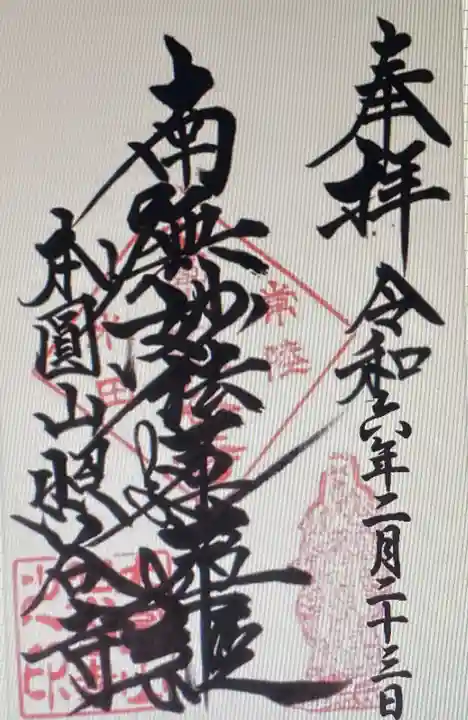 奉拝 令和六年二月二十三日
南無妙法蓮華経
本圓山照谷寺
常陸